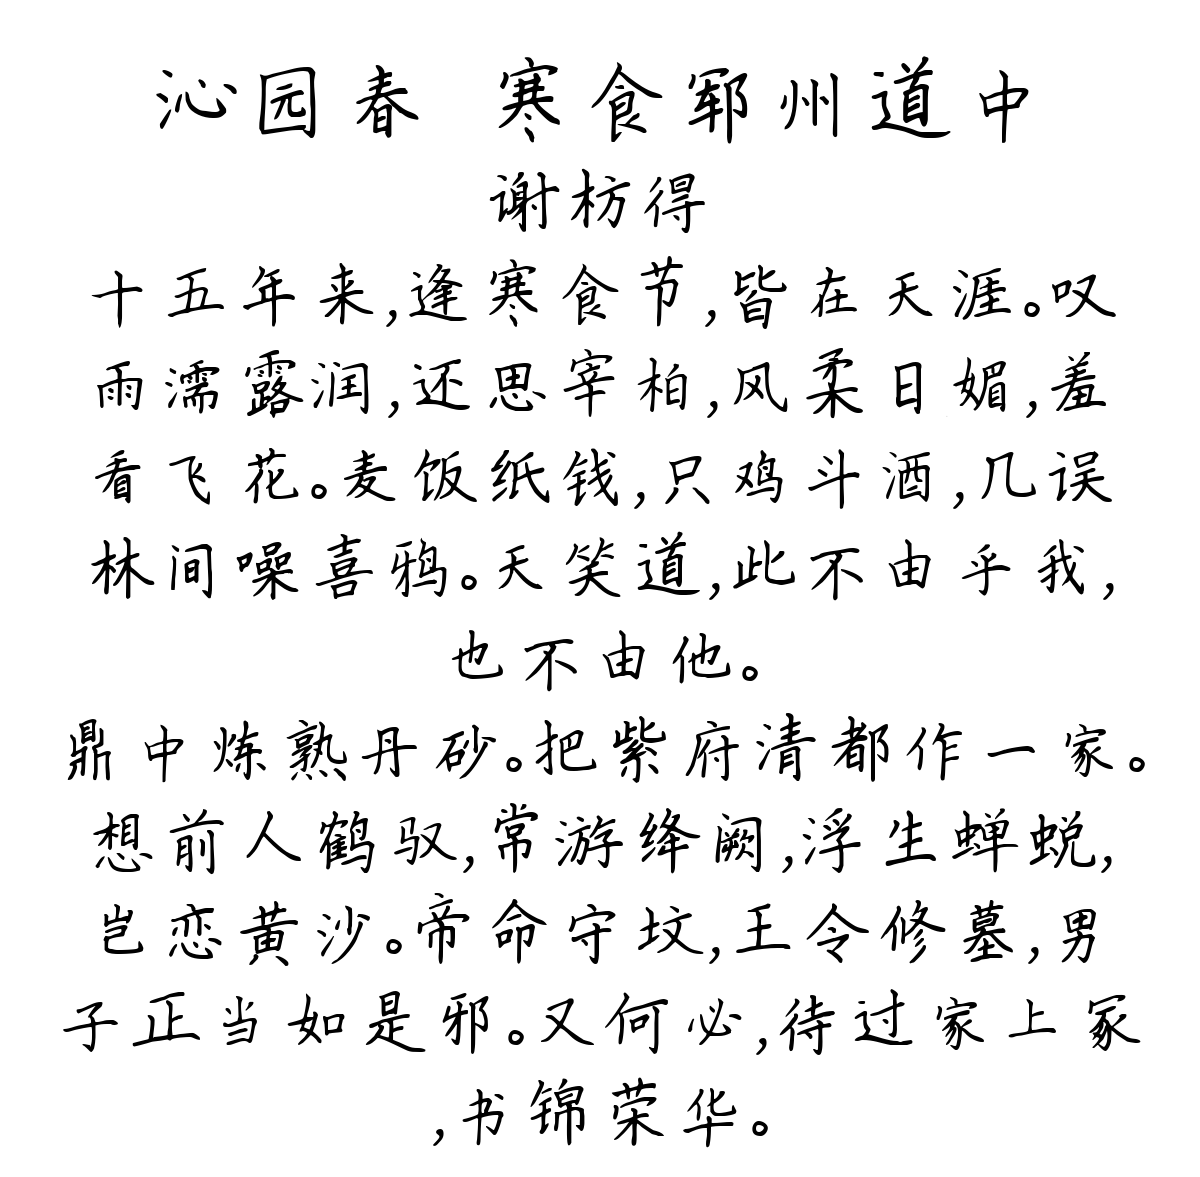 沁园春 寒食郓州道中
谢枋得
十五年来,逢寒食节,皆在天涯。叹
雨濡露润,还思宰柏,风柔日媚,羞
看飞花。麦饭纸钱,只鸡斗酒,几误
林间噪喜鸦。天笑道,此不由乎我,
也不由他。
鼎中炼熟丹砂。把紫府清都作一家。
想前人鹤驭,常游绛阙,浮生蝉蜕,
岂恋黄沙。帝命守坟,王令修墓,男
子正当如是邪。又何必,待过家上冢
,书锦荣华。